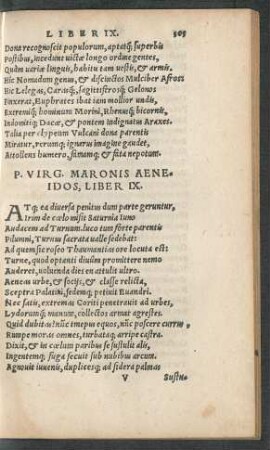 LIBER IX. 305
Dona recognoscit populorum, aptatq́; superbis
Postibus, incedunt uictæ longo ordine gentes,
Quàm uariæ linguis, habitu tam uestis, & armis.
Hîc Nomadum genus, & discinctos Mulciber Afros
Hîc Lelegas, Carasq́;, sagittiferosq́; Gelonos
Finxerat, Euphrates ibat iam mollior undis,
Extremiq́; hominum Morini, Rhenusq́; bicornis,
Indomitiq́; Dacæ, & pontem indignatus Araxes.
Talia per clypeum Vulcani dona parentis
Miratur, rerumq́; ignarus imagine gaudet,
Attollens humero, famamq́; & fata nepotum.
P. VIRG. MARONIS AENE-
IDOS, LIBER IX.
ATq; ea diuersa penitus dum parte geruntur,
Irim de cælo misit Saturnia Iuno
Audacem ad Turnum. luco tum forte parentis
Pilumni, Turnus sacrata ualle sedebat:
Ad quem sic roseo Thaumantias ore locuta est:
Turne, quod optanti diuûm promittere nemo
Auderet, uoluenda dies en attulit ultro.
Aeneas urbe, & socijs, & classe relicta,
Sceptra Palatini, sedemq́; petiuit Euandri.
Nec satis, extremas Coriti penetrauit ad urbes,
Lydorumq́; manum, collectos armat agrestes.
Quid dubitas? nũc tempus equos, nũc poscere currus,
Rumpe moras omnes, turbataq́; arripe castra.
Dixit, & in cælum paribus se sustulit alis,
Ingentemq́; fuga secuit sub nubibus arcum.
Agnouit iuuenis, duplicesq́; ad sidera palmas
V Sustu-